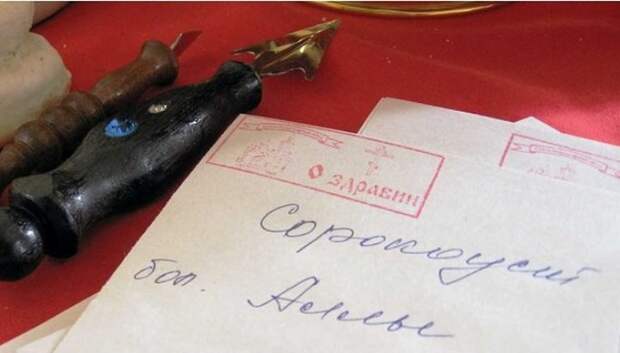 О здравии
Сорокоуст
бол. Аллы